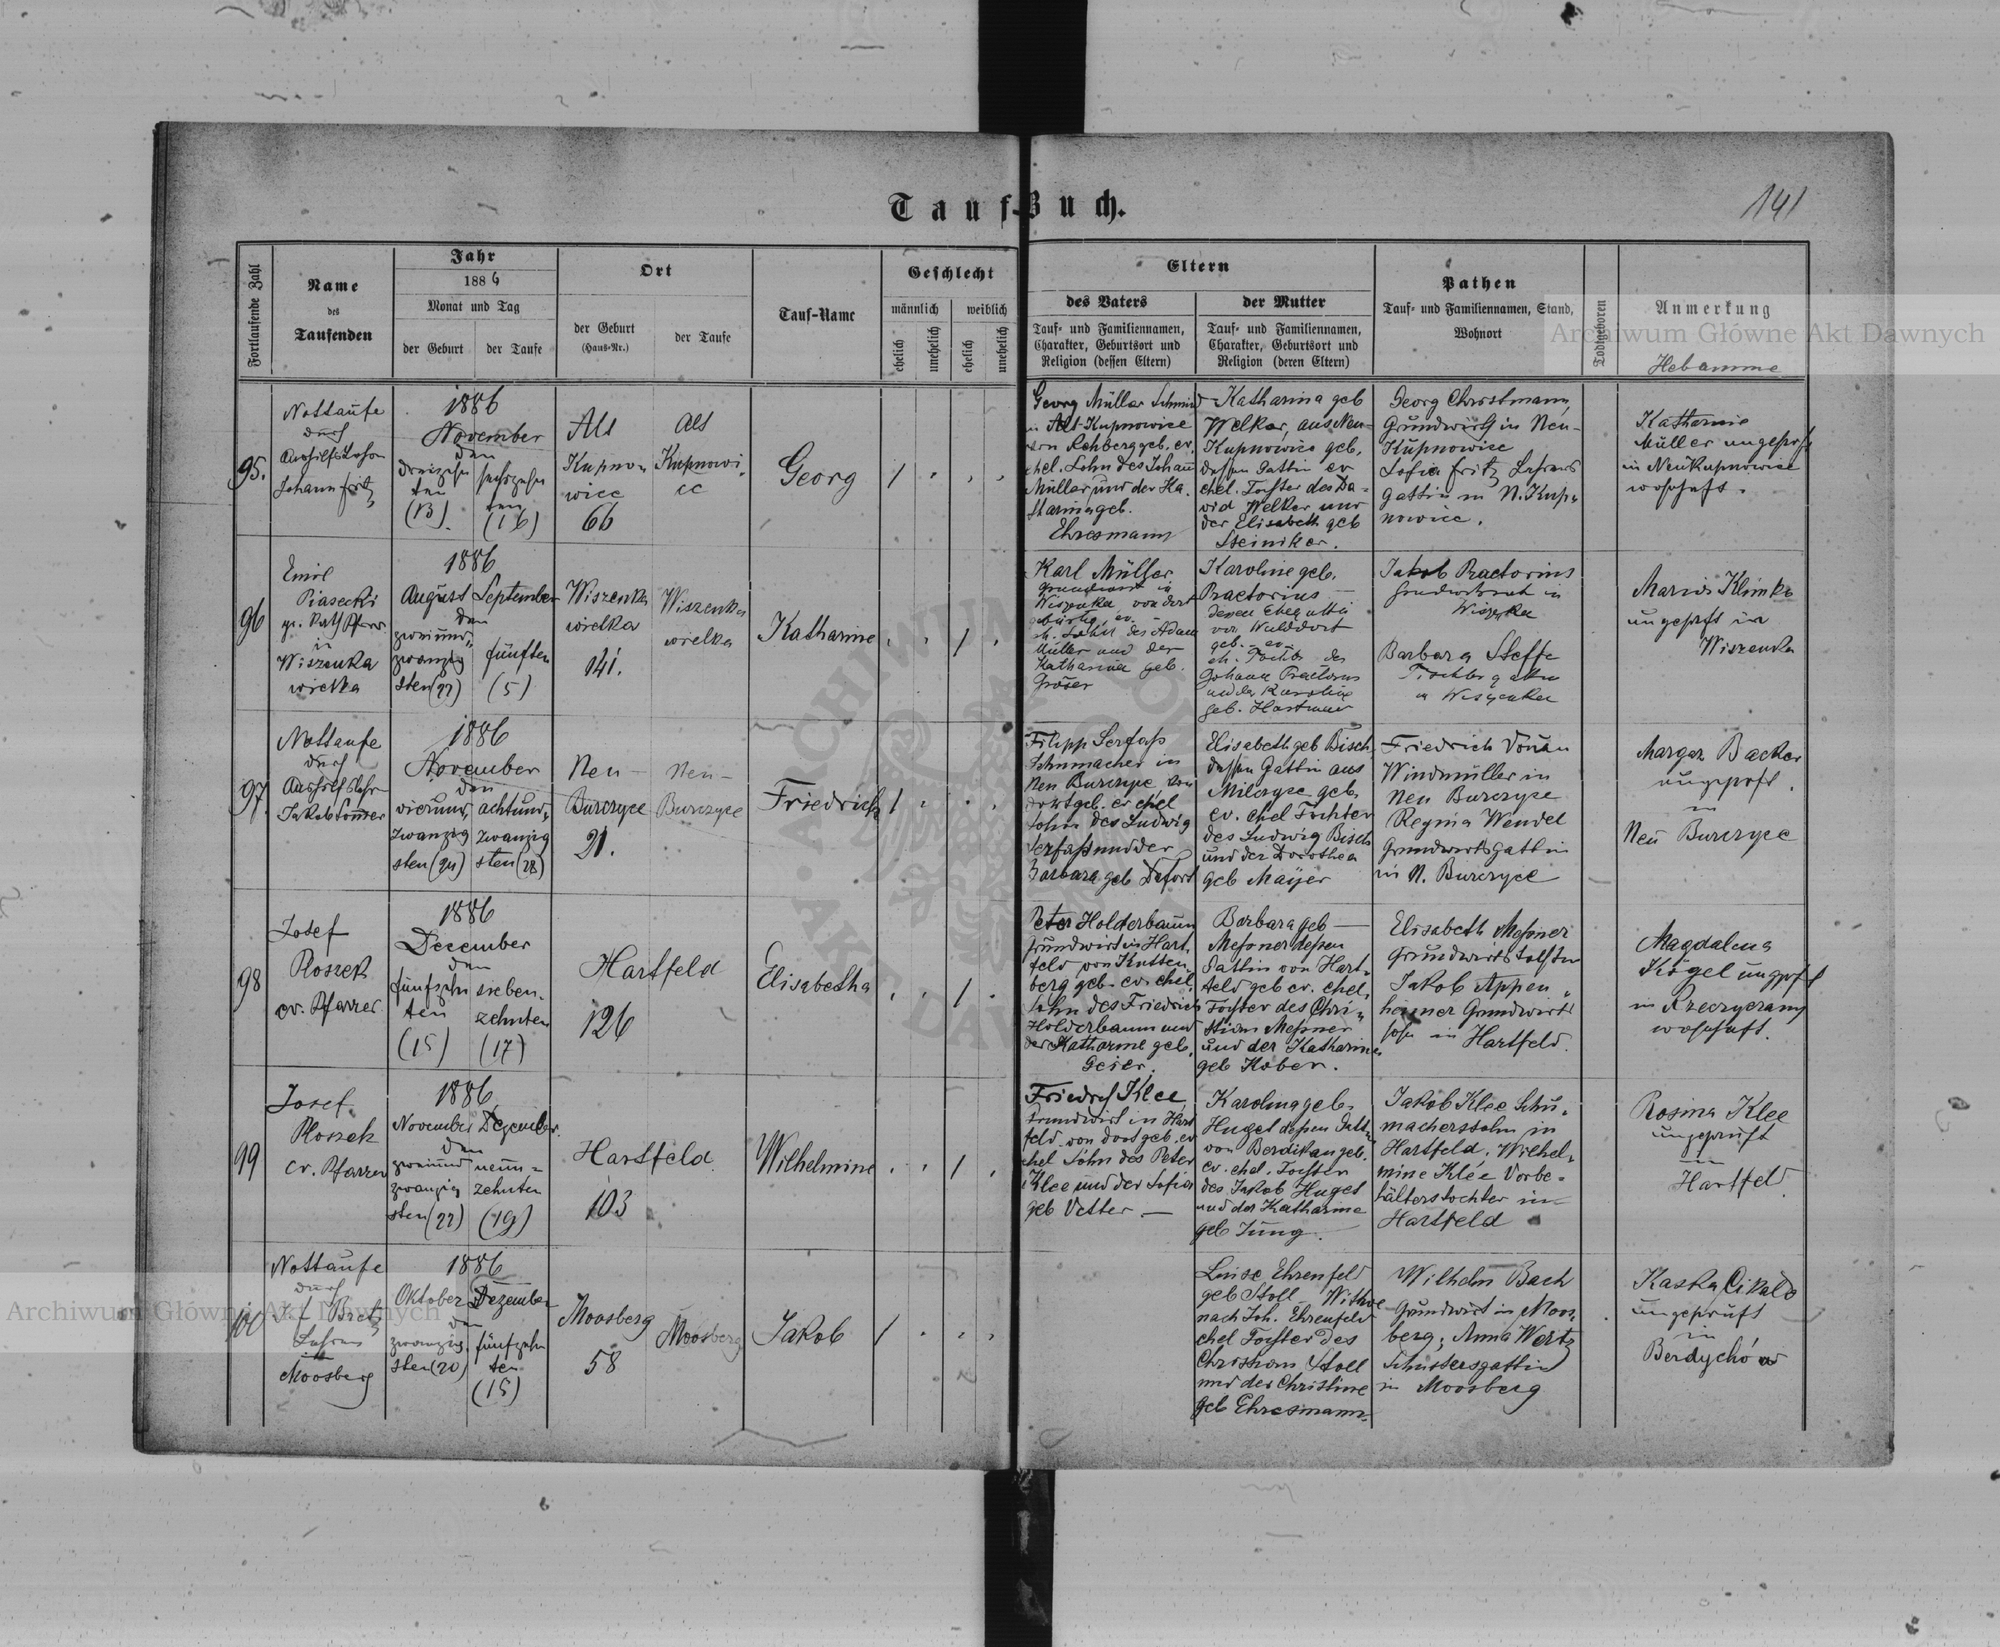 Tauf-Buch.
141
Fortlaufende Zahl
Name
des
Taufenden
Jahr
1886
Monat und Tag
der Geburt
der Taufe
Ort
der Geburt
(Haus-Nr.)
der Taufe
Tauf-Name
Geschlecht
männlich
weiblich
ehelich
unehelich
ehelich
unehelich
Eltern
des Vaters
Tauf- und Familiennamen,
Charakter, Geburtsort und
Religion (dessen Eltern)
der Mutter
Tauf- und Familiennamen,
Charakter, Geburtsort und
Religion (deren Eltern)
Pathen
Tauf- und Familiennamen, Stand,
Wohnort
Todtgeboren
Anmerkung
Hebamme
95.
Nottaufe
durch
Johann Fritz
1886
November
den
dreizehn
ten
(13)
sechszehn
ten
(16)
Alt
Kupno-
wice
66
Alt
Kupnowi-
ce
Georg
1
Georg Müller Schmied
in Alt-Kupnowice
von Rehberg geb. ev.
ehel. Sohn des Johann
Müller und der Ka-
tharina geb.
Ehresmann
Katharina geb
Welker, aus Neu-
Kupnowice geb.
dessen Gattin ev
ehel. Tochter des Da-
vid Welker und
der Elisabeth geb
Steiniker.
Georg Christmann,
Grundwirth in Neu-
Kupnowice
Sofia Fritz Lehrers
gattin in N. Kup-
nowice.
Katharine
Müller ungeprft
in Neukupnowice
wohnhaft.
96
Emil
Piasecki
gr. kath Pfarr.
in
Wiszenka
wielka
1886
August
September
den
zweiund-
zwanzig
sten (22)
fünften
(5)
Wiszenka
wielka
141.
Wiszenka
wielka
Katharine
1
Karl Müller
Grundwirt in
Wiszenka von dort
gebürtig, ev.
eh. Sohn des Adam
Müller und der
Katharina geb.
Gröser
Karoline geb.
Praetorius
deren Ehegattin
von Walddorf
geb. ev
eh. Tochter des
Johann Praetorius
und der Karoline
geb. Hartman
Jakob Praetorius
Grundwirt in
Wiszenka
Barbara Steffe
in Wiszenka
Maria Klimko
ungeprft in
Wiszenka
97.
Nottaufe
durch
Jakob Sonner
1886
November
den
vierund-
zwanzig
sten (24)
achtund-
zwanzig
sten (28)
Neu-
Burczyce
21.
Neu-
Burczyce
Friedrich
1
Filipp Serfaß
Schumacher in
Neu Burczyce von
dort geb. ev ehel
Sohn des Ludwig
Serfaß und der
Barbara geb Defort
Elisabeth geb Bisch
dessen Gattin aus
Milczyce geb.
ev. ehel Tochter
des Ludwig Bisch
und der Dorothea
geb Mayer
Friedrich Donau
Windmüller in
Neu Burczyce
Regina Wendel
Grundwirtsgattin
in N. Burczyce
Margar Backer
ungeprft.
in
Neu Burczyce
98
Josef
Ploszek
ev. Pfarrer
1886
Dezember
den
fünfzehn
ten
(15)
sieben-
zehnten
(17)
Hartfeld
126
Elisabetha
1
Peter Holderbaum
Grundwirt in Hart-
feld von Kutten-
berg geb. ev. ehel.
Sohn des Friedrich
Holderbaum und
der Katharine geb.
Geier.
Barbara geb
Meßner deßen
Gattin von Hart-
feld geb ev. ehel.
Tochter des Chri-
stian Meßner
und der Katharine
geb Kober.
Elisabeth Meßner
Grundwirtstochter
Jakob Appen-
heimer Grundwirt
sohn in Hartfeld.
Magdalena
Kögel ungprft
in Rzeczyczany
wohnhaft.
99
Josef
Ploszek
ev. Pfarrer
1886
November
Dezember
den
zweiund
zwanzig
sten (22)
neun-
zehnten
(19)
Hartfeld
103
Wilhelmine
1
Friedrich Klee
Grundwirt in Hart
feld von dort geb. ev
ehel Sohn des Peter
Klee und der Sofia
geb Vetter
Karolina geb.
Huget deßen Gattin
von Berdikau geb.
ev. ehel. Tochter
des Jakob Huget
und der Katharine
geb Jung.
Jakob Klee Schu-
macherssohn in
Hartfeld. Wilhel-
mine Klee Vorbe-
hälterstochter in
Hartfeld
Rosina Klee
ungeprüft
in
Hartfeld
100
Nottaufe
durch
Bretz
Lehrer
in
Moosberg
1886
Oktober
Dezember
den
zwanzig-
sten (20)
fünfzehn
ten
(15)
Moosberg
58
Moosberg
Jakob
1
Luise Ehrenfeld
geb Stoll Witwe
nach Joh. Ehrenfeld
ehel Tochter des
Christian Stoll
und der Christine
geb Ehresmann.
Wilhelm Bach
Grundwirt in Moos-
berg, Anna Wertz
Schustersgattin
in Moosberg
Kaska Cikalo
ungeprüft
in
Berdychów
Archiwum Główne Akt Dawnych
Archiwum Główne Akt Dawnych